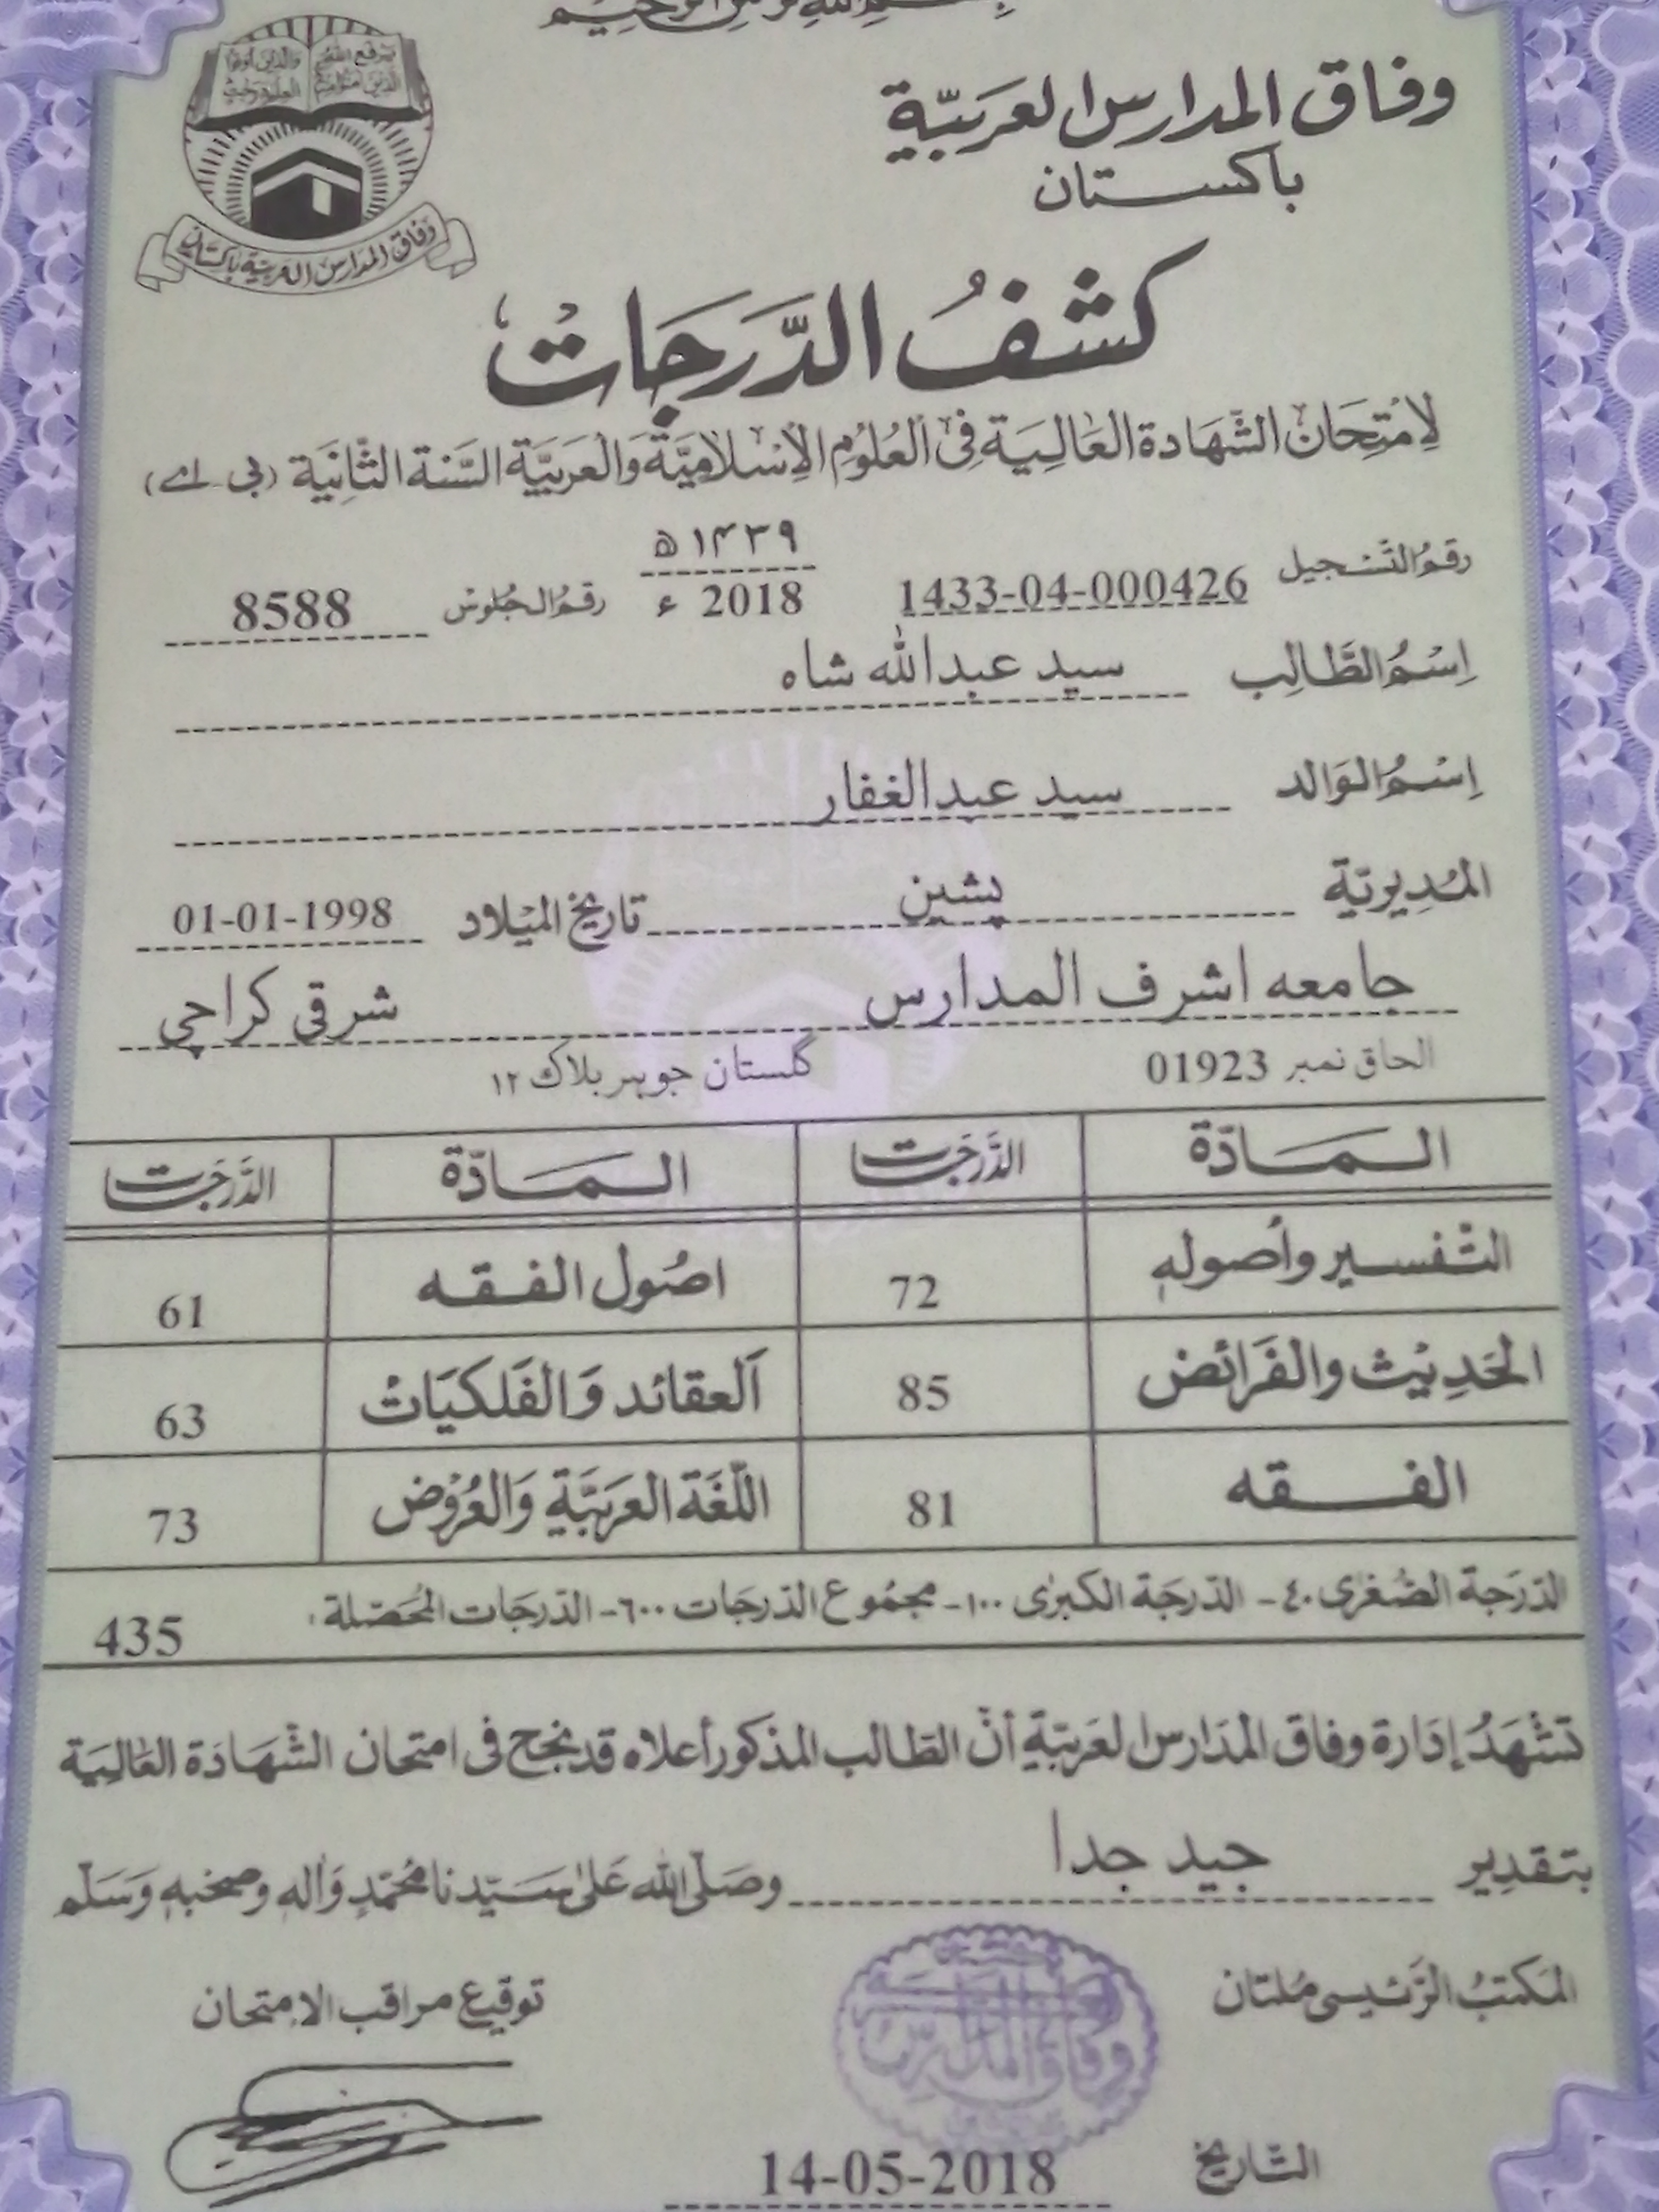 وفاق المدارس العربيّة
باكستان
وفاق المدارس العربية باكستان
كشفُ الدَّرَجَات
لِامْتِحَانِ الشَّهَادة العَالِيَة فِي العُلُومِ الإسْلَامِيَّة وَالْعَرَبِيَّة السَّنة الثَّانِيَة (بی اے)
رقمُ التَّسْجيل 1433-04-000426 ۱۴۳۹ھ 2018 ء رقمُ الجُلوس 8588
اِسْمُ الطَّالِب سيد عبدالله شاه
اِسْمُ الوَالد سيد عبدالغفار
المُدِيرِيَّة پشين تاريخ الميْلاد 01-01-1998
جامعه اشرف المدارس شرقی کراچی
الحاق نمبر 01923 گلستان جوہر بلاک ۱۲
المَادّة الدَّرَجَات المَادّة الدَّرَجَات
التّفسير وأُصوله 72 اصُول الفقه 61
الحَدِيْث والفَرَائض 85 اَلعقائد وَالفَلكيَات 63
الفقه 81 اللّغَة العَرَبيَّة وَالعُرُوْض 73
الدّرَجَة الصُّغرٰى ٤٠- الدّرجَة الكبرٰى ١٠٠- مجمُوع الدّرجَات ٦٠٠- الدّرجَات المُحَصّلة: 435
تَشْهَدُ إدَارة وفاق المَدَارس العَربيّة أنّ الطّالب المذكور أعلاه قد نجح فى امتحان الشّهَادَة العَالِيَة
بتقدِير جيد جدا وصَلّى الله عَلىٰ سَيّدنا محُمّدٍ وَاٰلهٖ وصحْبهٖ وَسَلّم
المَكتبُ الرَّئيسى مُلتان توقيع مراقب الامتحان
التّاريخ 14-05-2018